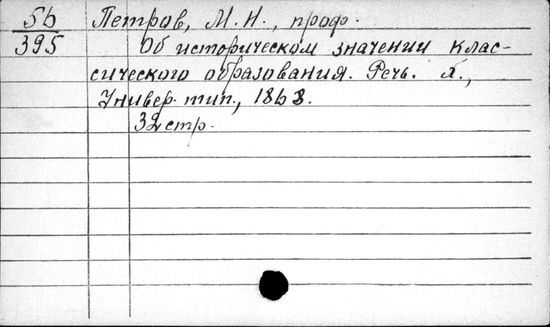 5б Петров, М. Н., проф.
395 Об историческом значении клас-
сического образования. Речь. Х.,
Универ. тип., 1868.
32 стр.